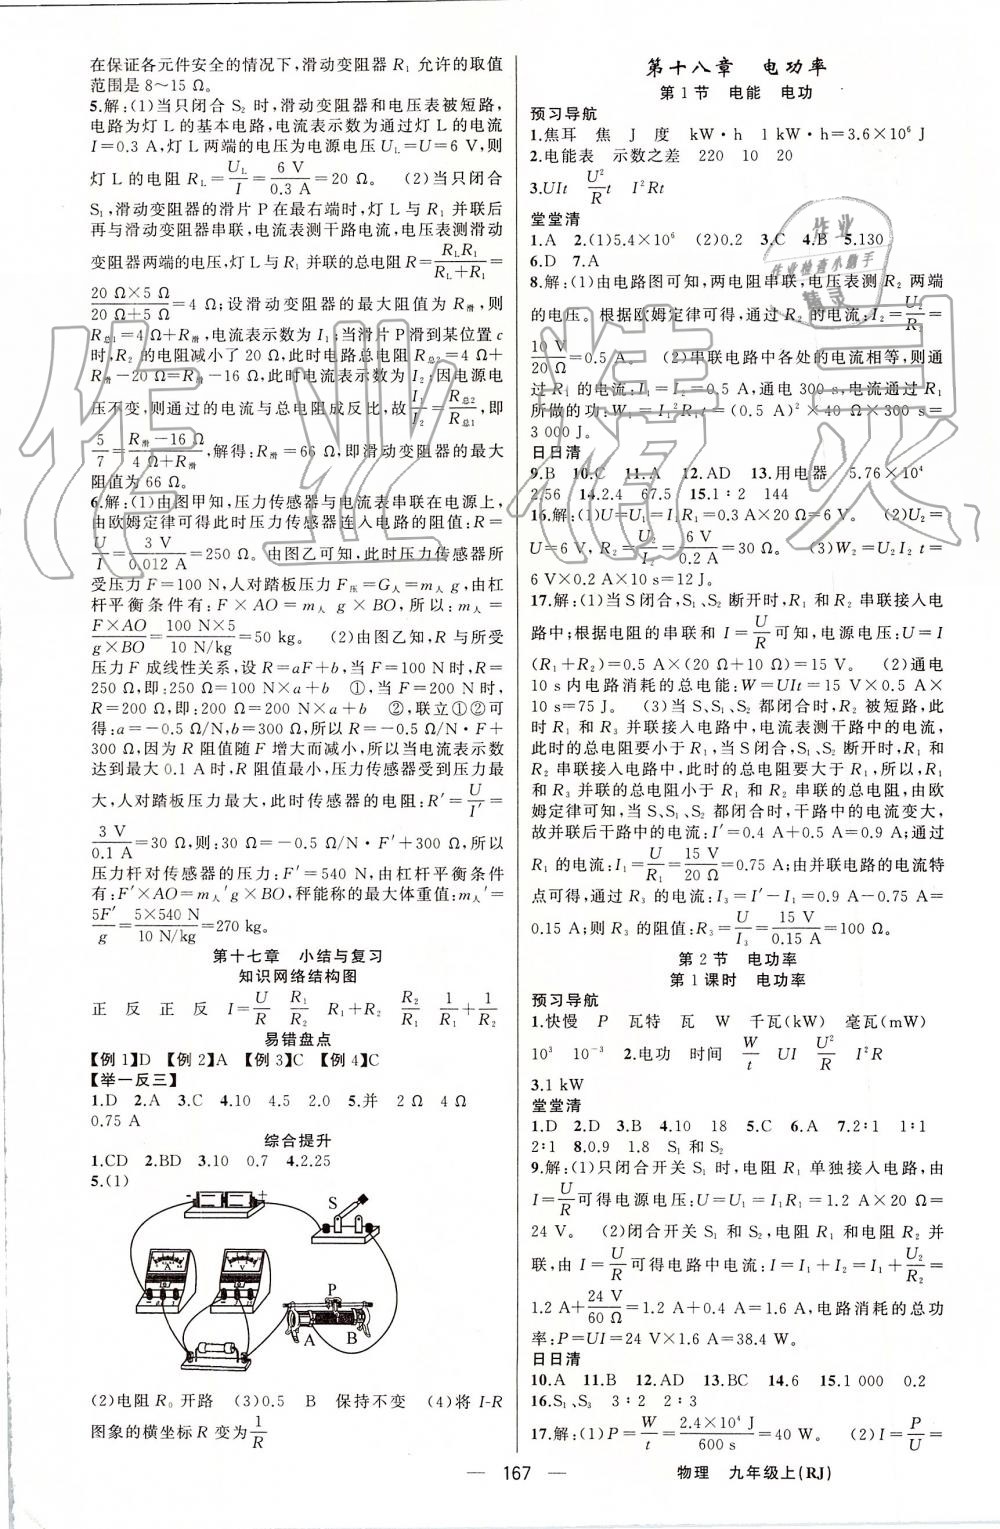 在保证各元件安全的情况下,滑动变阻器 R₁ 允许的取值
范围是 8～15 Ω。
5.解:(1)当只闭合 S₂ 时,滑动变阻器和电压表被短路,
电路为灯 L 的基本电路,电流表示数为通过灯 L 的电流
I=0.3 A,灯 L 两端的电压为电源电压 U_L=U=6 V,则
灯 L 的电阻 R_L=U_L/I=6 V/0.3 A=20 Ω。 (2)当只闭合
S₁,滑动变阻器的滑片 P 在最右端时,灯 L 与 R₁ 并联后
再与滑动变阻器串联,电流表测干路电流,电压表测滑动
变阻器两端的电压,灯 L 与 R₁ 并联的总电阻 R=R_L R₁/(R_L+R₁)=
20 Ω×5 Ω/(20 Ω+5 Ω)=4 Ω;设滑动变阻器的最大阻值为 R滑,则
R总1=4 Ω+R滑,电流表示数为 I₁;当滑片 P 滑到某位置 c
时,R₂ 的电阻减小了 20 Ω,此时电路总电阻 R总2=4 Ω+
R滑-20 Ω=R滑-16 Ω,此时电流表示数为 I₂;因电源电
压不变,则通过的电流与总电阻成反比,故 I₁/I₂=R总2/R总1,即
5/7=(R滑-16 Ω)/(4 Ω+R滑),解得:R滑=66 Ω,即滑动变阻器的最大
阻值为 66 Ω。
6.解:(1)由图甲知,压力传感器与电流表串联在电源上,
由欧姆定律可得此时压力传感器连入电路的阻值:R=
U/I=3 V/0.012 A=250 Ω。由图乙可知,此时压力传感器所
受压力 F=100 N,人对踏板压力 F压=G人=m人 g,由杠
杆平衡条件有:F×AO=m人 g×BO,所以:m人=
F×AO/g×BO=100 N×5/10 N/kg=50 kg。 (2)由图乙知,R 与所受
压力 F 成线性关系,设 R=aF+b,当 F=100 N 时,R=
250 Ω,即:250 Ω=100 N×a+b ①,当 F=200 N 时,
R=200 Ω,即:200 Ω=200 N×a+b ②,联立①②可
得:a=-0.5 Ω/N,b=300 Ω,所以 R=-0.5 Ω/N·F+
300 Ω,因为 R 阻值随 F 增大而减小,所以当电流表示数
达到最大 0.1 A 时,R 阻值最小,压力传感器受到压力最
大,人对踏板压力最大,此时传感器的电阻:R′=U/I′=
3 V/0.1 A=30 Ω,则:30 Ω=-0.5 Ω/N·F′+300 Ω,所以
压力杆对传感器的压力:F′=540 N,由杠杆平衡条件
有:F′×AO=m人′g×BO,秤能称的最大体重值:m人′=
5F′/g=5×540 N/10 N/kg=270 kg。
第十七章 小结与复习
知识网络结构图
正 反 正 反 I=U/R R₁/R₂ R₁+R₂ R₂/R₁ 1/R₁+1/R₂
易错盘点
【例 1】D 【例 2】A 【例 3】C 【例 4】C
【举一反三】
1.D 2.A 3.C 4.10 4.5 2.0 5.并 2 Ω 4 Ω
0.75 A
综合提升
1.CD 2.BD 3.10 0.7 4.2.25
5.(1)
- + S
A V P
A B
(2)电阻 R₀ 开路 (3)0.5 B 保持不变 (4)将 I-R
图象的横坐标 R 变为 1/R
第十八章 电功率
第 1 节 电能 电功
预习导航
1.焦耳 焦 J 度 kW·h 1 kW·h=3.6×10⁶ J
2.电能表 示数之差 220 10 20
3.UIt U²/R t I²Rt
堂堂清
1.A 2.(1)5.4×10⁶ (2)0.2 3.C 4.B 5.130
6.D 7.A
8.解:(1)由电路图可知,两电阻串联,电压表测 R₂ 两端
的电压。根据欧姆定律可得,通过 R₂ 的电流:I₂=U₂/R₂=
10 V/20 Ω=0.5 A。 (2)串联电路中各处的电流相等,则通
过 R₁ 的电流:I₁=I₂=0.5 A,通电 300 s,电流通过 R₁
所做的功:W₁=I₁²R₁t=(0.5 A)²×40 Ω×300 s=
3 000 J。
日日清
9.B 10.C 11.A 12.AD 13.用电器 5.76×10⁴
2.56 14.2.4 67.5 15.1∶2 144
16.解:(1)U=U₁=I₁R₁=0.3 A×20 Ω=6 V。 (2)U₂=
U=6 V,R₂=U₂/I₂=6 V/0.2 A=30 Ω。 (3)W₂=U₂I₂ t=
6 V×0.2 A×10 s=12 J。
17.解:(1)当 S 闭合,S₁、S₂ 断开时,R₁ 和 R₂ 串联接入电
路中;根据电阻的串联和 I=U/R可知,电源电压:U=I
(R₁+R₂)=0.5 A×(20 Ω+10 Ω)=15 V。 (2)通电
10 s 内电路消耗的总电能:W=UIt=15 V×0.5 A×
10 s=75 J。 (3)当 S、S₁、S₂ 都闭合时,R₂ 被短路,此
时 R₁ 和 R₃ 并联接入电路中,电流表测干路中的电流,
此时的总电阻要小于 R₁,当 S 闭合,S₁、S₂ 断开时,R₁ 和
R₂ 串联接入电路中,此时的总电阻要大于 R₁,所以,R₁
和 R₃ 并联的总电阻小于 R₁ 和 R₂ 串联的总电阻,由欧
姆定律可知,当 S、S₁、S₂ 都闭合时,干路中的电流变大,
故并联后干路中的电流:I′=0.4 A+0.5 A=0.9 A;通过
R₁ 的电流:I₁=U/R₁=15 V/20 Ω=0.75 A;由并联电路的电流特
点可得,通过 R₃ 的电流:I₃=I′-I₁=0.9 A-0.75 A=
0.15 A;则 R₃ 的阻值:R₃=U/I₃=15 V/0.15 A=100 Ω。
第 2 节 电功率
第 1 课时 电功率
预习导航
1.快慢 P 瓦特 瓦 W 千瓦(kW) 毫瓦(mW)
10³ 10⁻³ 2.电功 时间 W/t UI U²/R I²R
3.1 kW
堂堂清
1.D 2.D 3.B 4.10 18 5.C 6.A 7.2∶1 1∶1
2∶1 8.0.9 1.8 S₁ 和 S₂
9.解:(1)只闭合开关 S₁ 时,电阻 R₁ 单独接入电路,由
I=U/R可得电源电压:U=U₁=I₁R₁=1.2 A×20 Ω=
24 V。 (2)闭合开关 S₁ 和 S₂,电阻 R₁ 和电阻 R₂ 并
联,由 I=U/R可得电路中电流:I=I₁+I₂=I₁+U₂/R₂=
1.2 A+24 V/60 Ω=1.2 A+0.4 A=1.6 A,电路消耗的总功
率:P=UI=24 V×1.6 A=38.4 W。
日日清
10.A 11.B 12.AD 13.BC 14.6 15.1 000 0.2
16.S₁、S₃ 3∶2 2∶3
17.解:(1)P=W/t=2.4×10⁴ J/600 s=40 W。 (2)I=P/U=
167 物理 九年级上(RJ)
作业
作业检查小助手
精灵
作业精灵